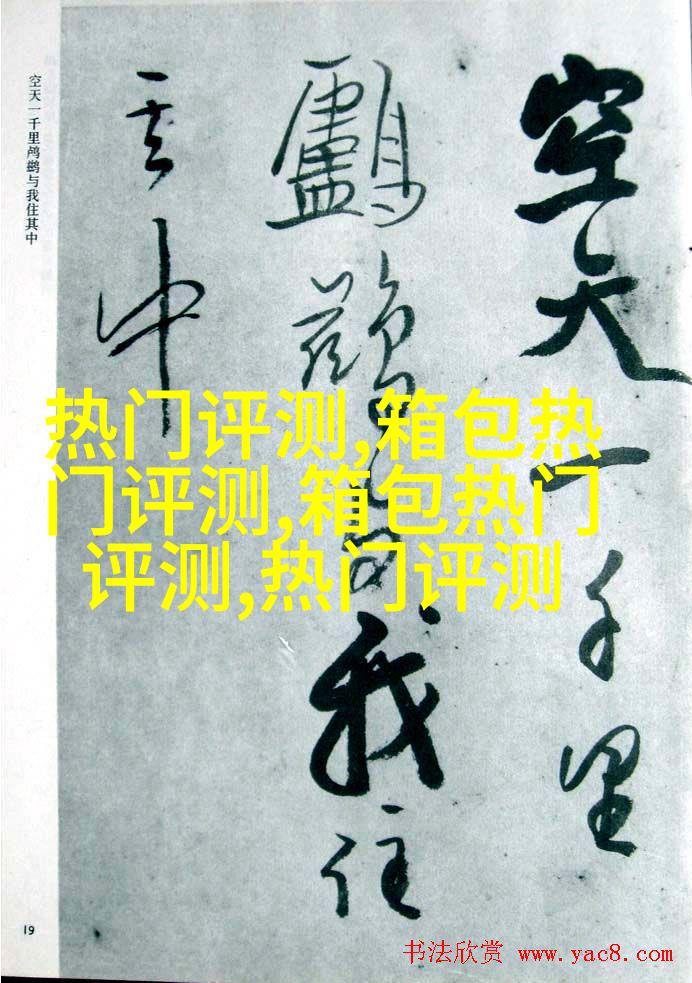 空天一千里
鸕鷀与我住
其中
空天一千里鸬鹚与我住其中
热门评测,箱包热
门评测,箱包热门
评测,热门评测
19
书法欣赏 www.yac8.com